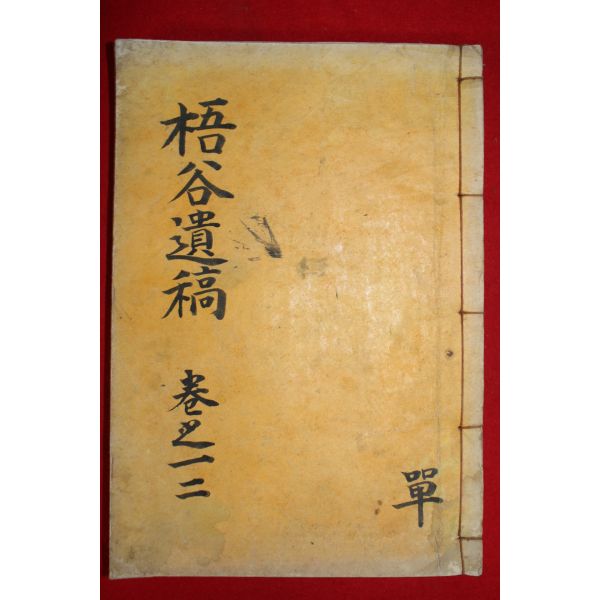 梧谷遺稿
卷之一二
單